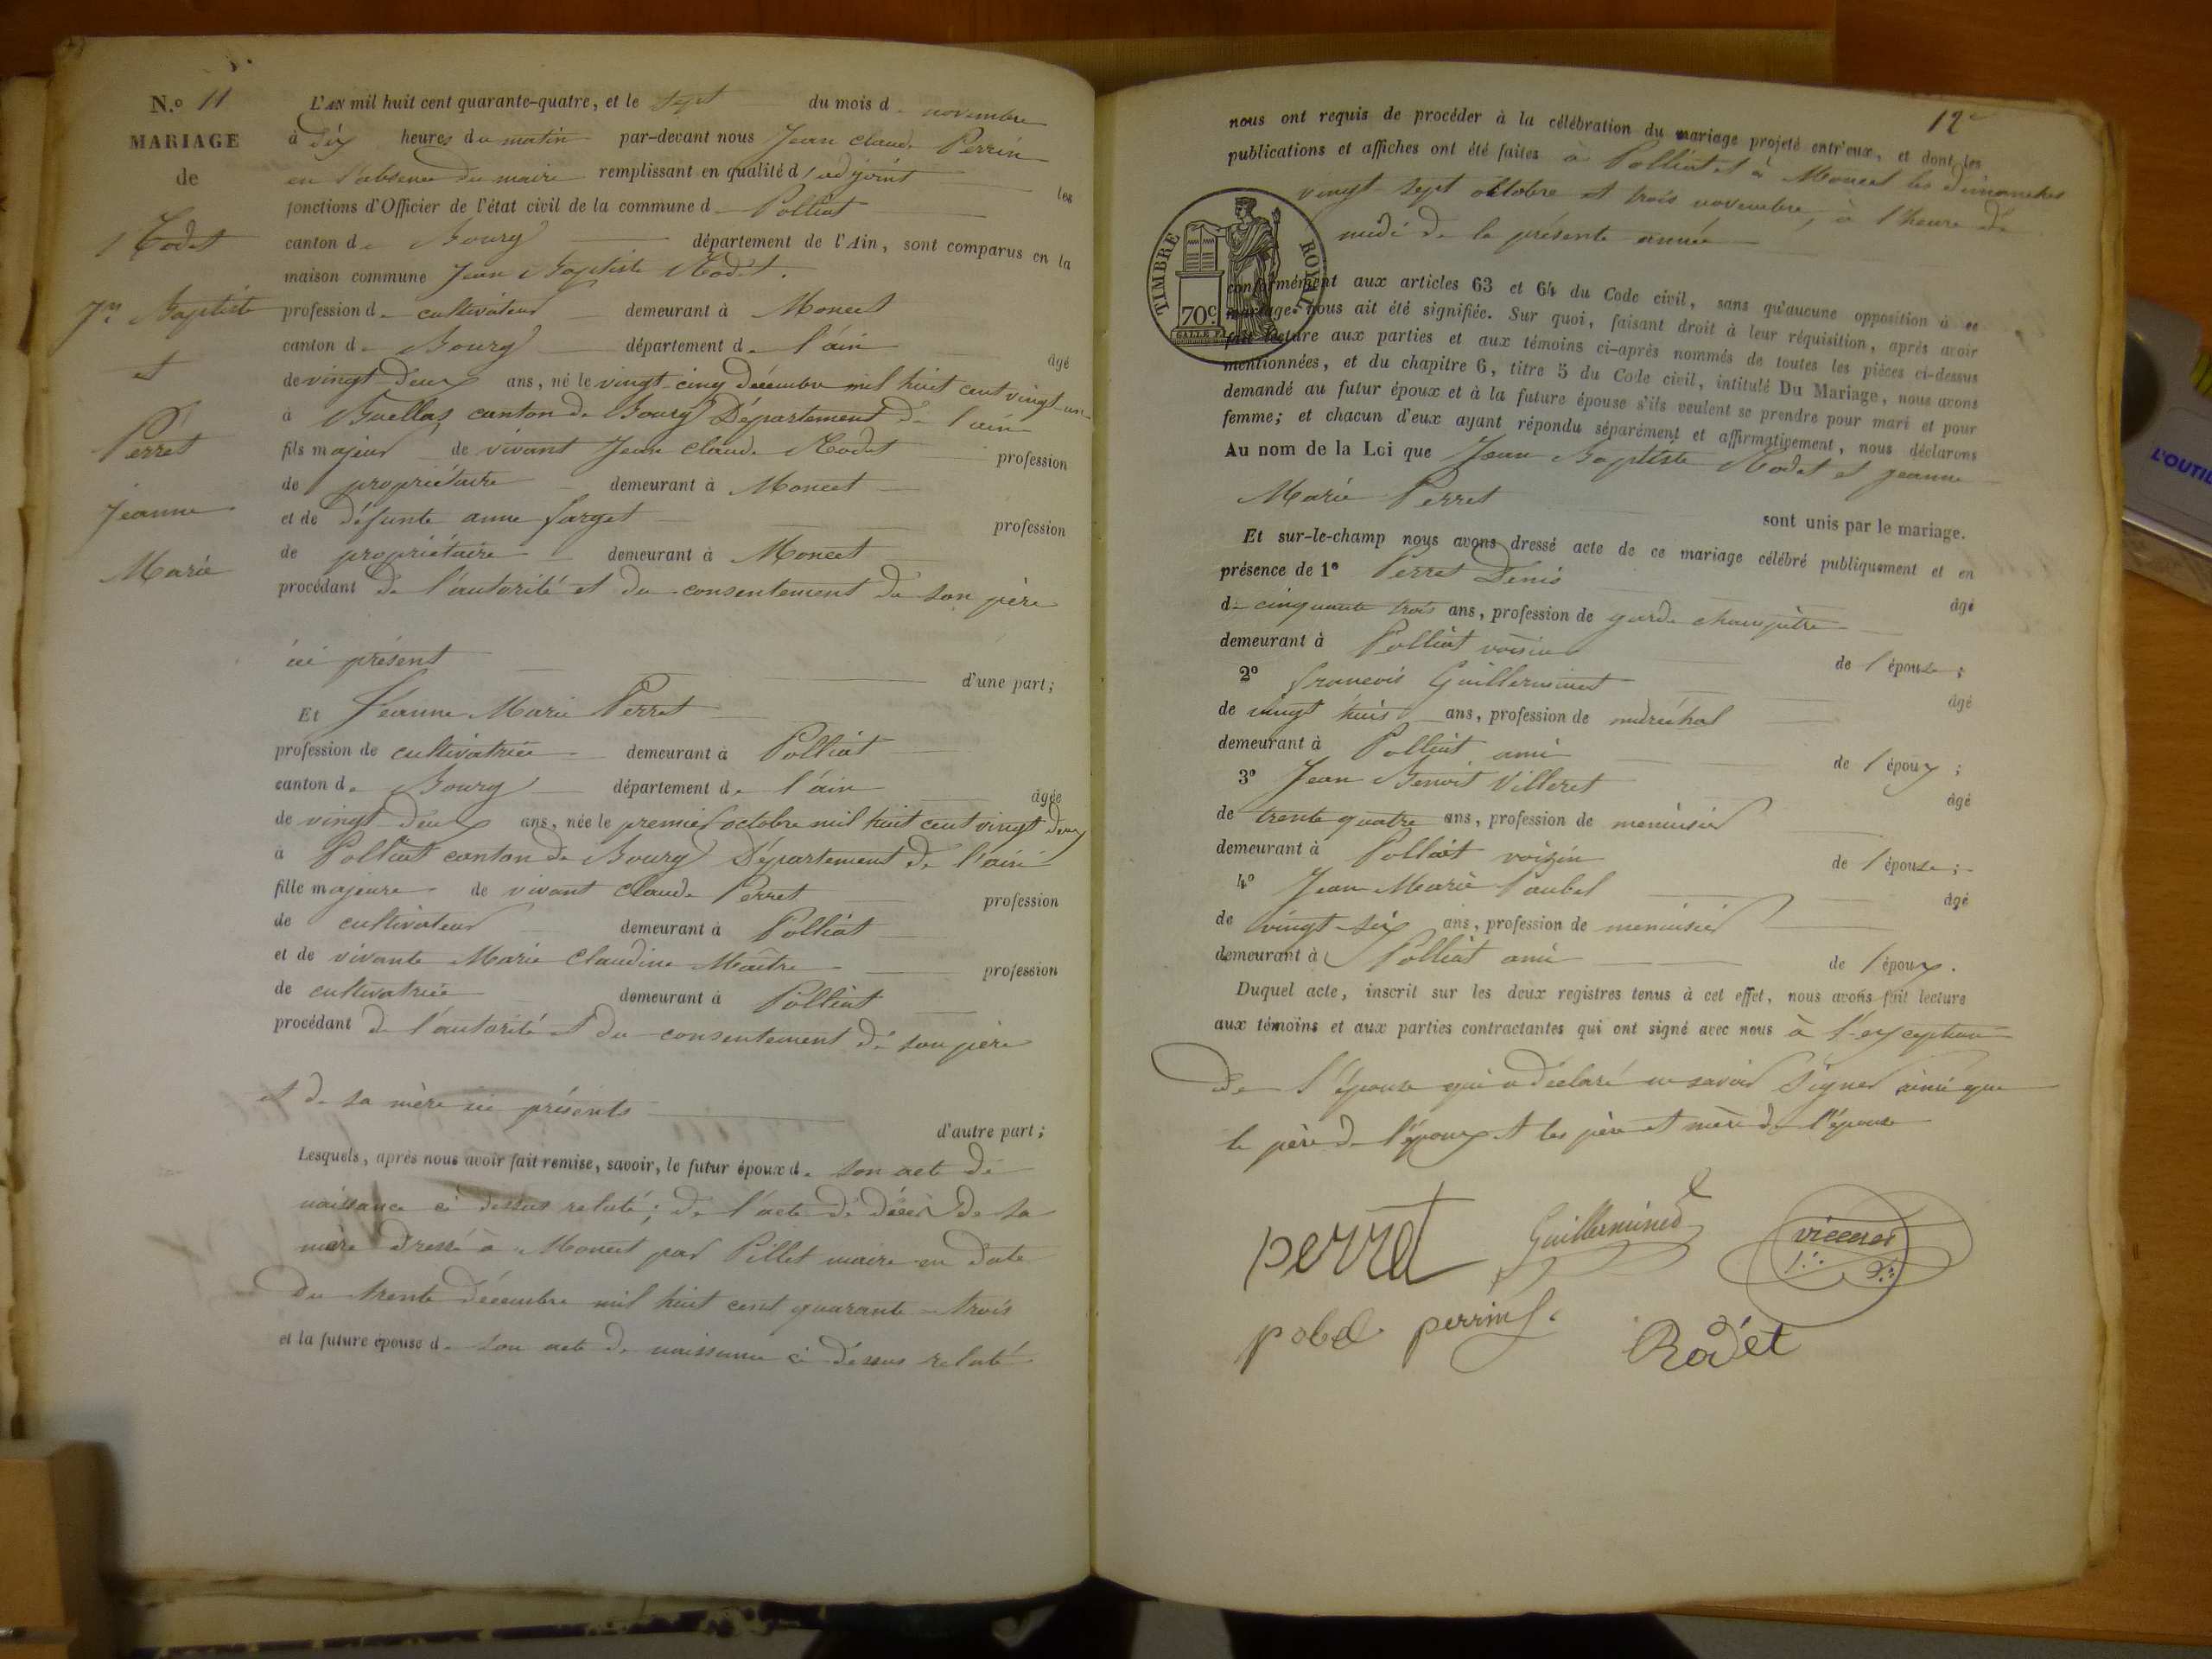 N.o 11
MARIAGE
de
Rodet
Jn Baptiste
et
Perret
Jeanne
Marie
L'AN mil huit cent quarante-quatre, et le sept du mois de novembre
à dix heures du matin par-devant nous Jean Claude Perrin
en l'absence du maire remplissant en qualité d'adjoint les
fonctions d'Officier de l'état civil de la commune de Polliat
canton de Bourg département de l'Ain, sont comparus en la
maison commune Jean Baptiste Rodet.
profession de cultivateur demeurant à Moncet
canton de Bourg département de l'ain âgé
de vingt-deux ans, né le vingt-cinq décembre mil huit cent vingt-un
à Buellas canton de Bourg Département de l'ain
fils majeur de vivant Jean Claude Rodet profession
de propriétaire demeurant à Moncet
et de défunte anne farget profession
de propriétaire demeurant à Moncet
procédant de l'autorité et du consentement de son père
ici présent
d'une part;
Et Jeanne Marie Perret
profession de cultivatrice demeurant à Polliat
canton de Bourg département de l'ain âgée
de vingt deux ans, née le premier octobre mil huit cent vingt deux
à Polliat canton de Bourg Département de l'ain
fille majeure de vivant Claude Perret profession
de cultivateur demeurant à Polliat
et de vivante Marie Claudine Maître profession
de cultivatrice demeurant à Polliat
procédant de l'autorité et du consentement de son père
et de sa mère ici présents
d'autre part;
Lesquels, après nous avoir fait remise, savoir, le futur époux de son acte de
naissance ci dessus relaté; de l'acte de décès de sa
mère dressé à Moncet par Pillet maire en date
du trente décembre mil huit cent quarante-trois
et la future épouse de son acte de naissance ci dessus relaté
12e
nous ont requis de procéder à la célébration du mariage projeté entr'eux, et dont les
publications et affiches ont été faites à Polliat et à Moncet les dimanches
vingt-sept octobre et trois novembre, à l'heure de
midi de la présente année
TIMBRE ROYAL
70c.
conformément aux articles 63 et 64 du Code civil, sans qu'aucune opposition à ce
mariage nous ait été signifiée. Sur quoi, faisant droit à leur réquisition, après avoir
fait lecture aux parties et aux témoins ci-après nommés de toutes les pièces ci-dessus
mentionnées, et du chapitre 6, titre 5 du Code civil, intitulé Du Mariage, nous avons
demandé au futur époux et à la future épouse s'ils veulent se prendre pour mari et pour
femme; et chacun d'eux ayant répondu séparément et affirmativement, nous déclarons
Au nom de la Loi que Jean Baptiste Rodet et jeanne
Marie Perret
sont unis par le mariage.
Et sur-le-champ nous avons dressé acte de ce mariage célébré publiquement et en
présence de 1o Perret Denis âgé
de cinquante trois ans, profession de garde champêtre
demeurant à Polliat voisin de l'épouse;
2o francois Guillerminet âgé
de vingt huit ans, profession de maréchal
demeurant à Polliat ami de l'époux;
3o Jean Benoit Villeret âgé
de trente quatre ans, profession de menuisier
demeurant à Polliat voizin de l'épouse;
4o Jean Marie Paubel âgé
de vingt-six ans, profession de menuisier
demeurant à Polliat ami de l'époux.
Duquel acte, inscrit sur les deux registres tenus à cet effet, nous avons fait lecture
aux témoins et aux parties contractantes qui ont signé avec nous à l'exception
de l'épouse qui a déclaré ne savoir signer ainsi que
le père de l'époux et les père et mère de l'épouse
perret Guillerminet
pobel perrin
Rodet
L'OUTIL